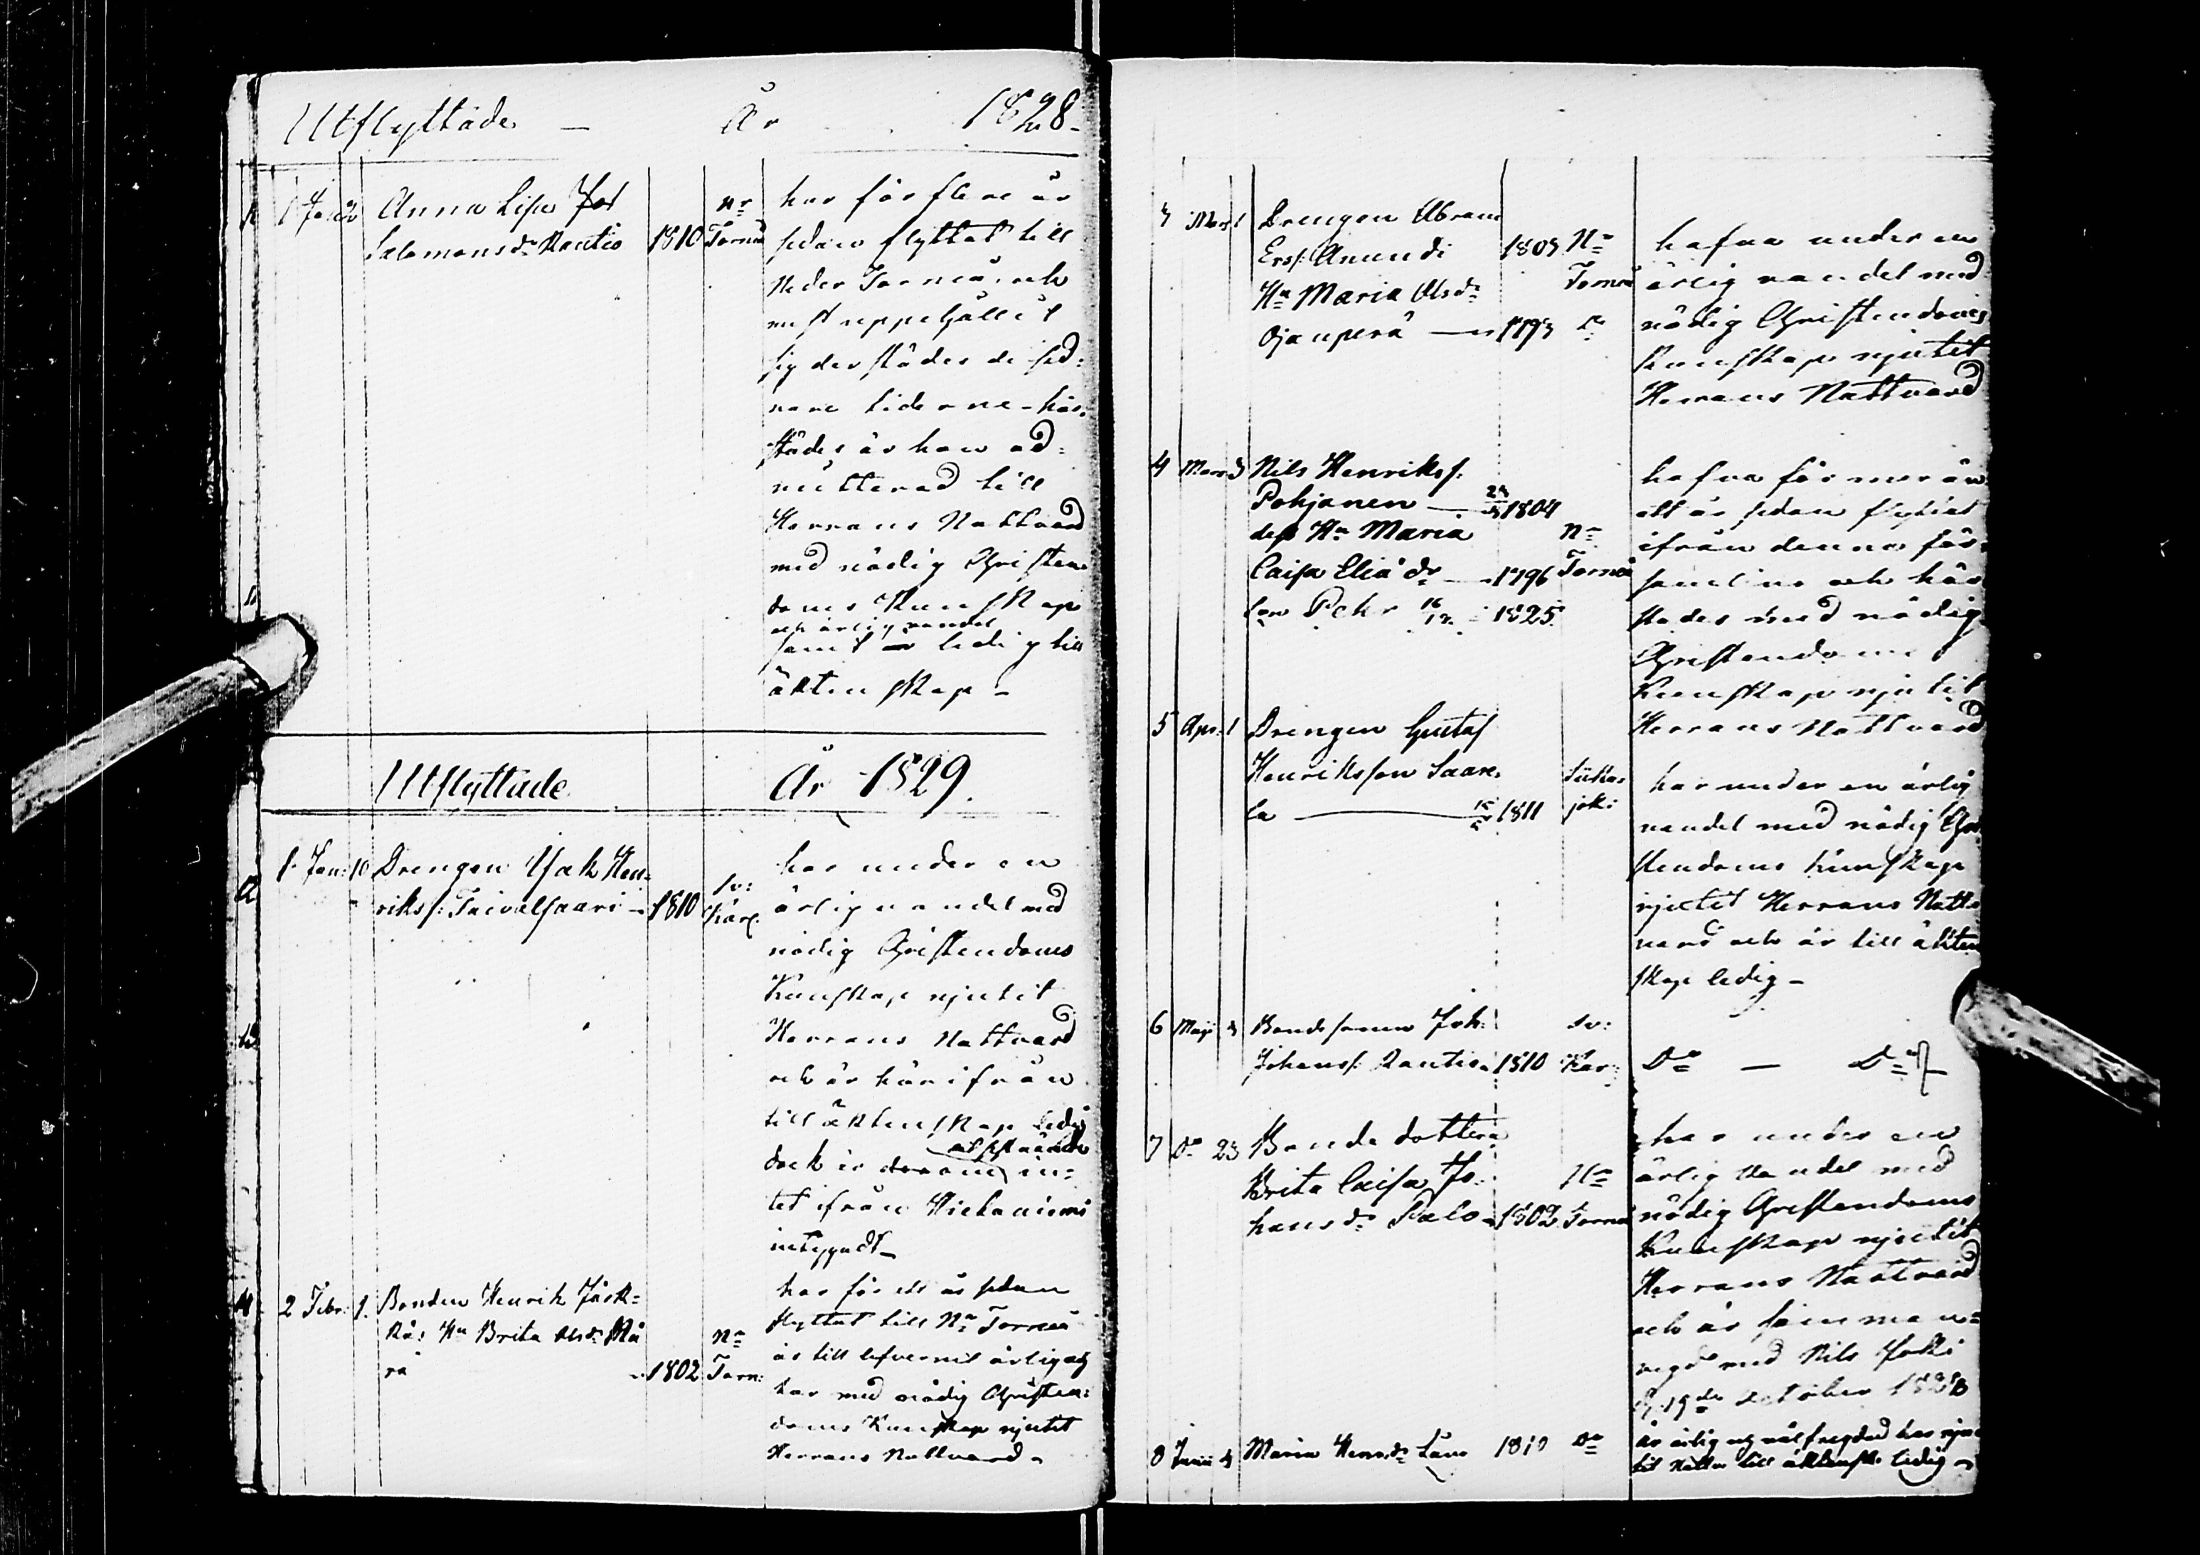 Utflyttade — År 1828
Anna Lisa
Salomonsdr Rautio 1810 Nr Torneå
har för flere år
sedan flyttat till
Neder Torneå, och
mest uppehållit
sig derstädes de sed-
nare tiderne - här-
städes är hon ad-
mitterad till
Herrans Nattvard
med nödig Christen-
doms Kunskap
och ärlig vandel
samt ledig till
äktenskap -
Utflyttade År 1829.
1 Jan: 10 Drengen Isak Hen-
rikss: Taivalsaari - 1810 Sv: Karl:
har under en
ärlig vandel med
nödig Christendoms
Kunskap njutit
Herrans Nattvard
och är härifrån
till äktenskap ledig
dock är in-
tet ifrån Hietaniemi
2 Febr: 1. Bonden Henrik
Hu Brita Olsdr
1802 Nr Torn:
har för ett år sedan
flyttat till Nr Torneå
är till lefvernet ärlig och
har med nödig Christen-
doms Kunskap njutit
Herrans Nattvard -
3 Mars 1 Drengen Abram
Erss: Anundi 1803 Nr Torneå
Hu Maria Olsdr
Ojanperä — 1793 Do
hafva under en
ärlig vandel med
nödig Christendoms
Kunskap njutit
Herrans Nattvard
4 Mars 3 Nils Henrikss:
Pohjanen — 1804
dess Hu Maria Nr
Caisa Eliædr — 1796 Torneå
son Pehr 16/12 - 1825
hafva för mer än
ett år sedan flyttat
ifrån denna för-
samling och här
städes med nödig
Christendoms
Kunskap njutit
Herrans Nattvard
5 Apr: 1 Drengen Gustaf
Henriksson Saare-
la — 1811
har under en ärlig
vandel med nödig Chri-
stendoms Kunskap
njutit Herrans Natt-
vard och är till äkten
skap ledig -
6 Maji 3 Bondsonen Joh:
Johanss: Rautio 1810 Sv: Kar:
Do — Do
7 Do 23 Bonde dottern
Brita Caisa Jo-
hansdr Palo - 1802 Nr Torneå
har under en
ärlig vandel med
nödig Christendoms
Kunskap njutit
Herrans Nattvard
och är samman-
vigd med Nils
d. 19de October 1828
8 Junii 3 Maria Henrdr 1810 Do
är ärlig och välfregdad har nju-
tit Nattv: till äktensk: ledig -